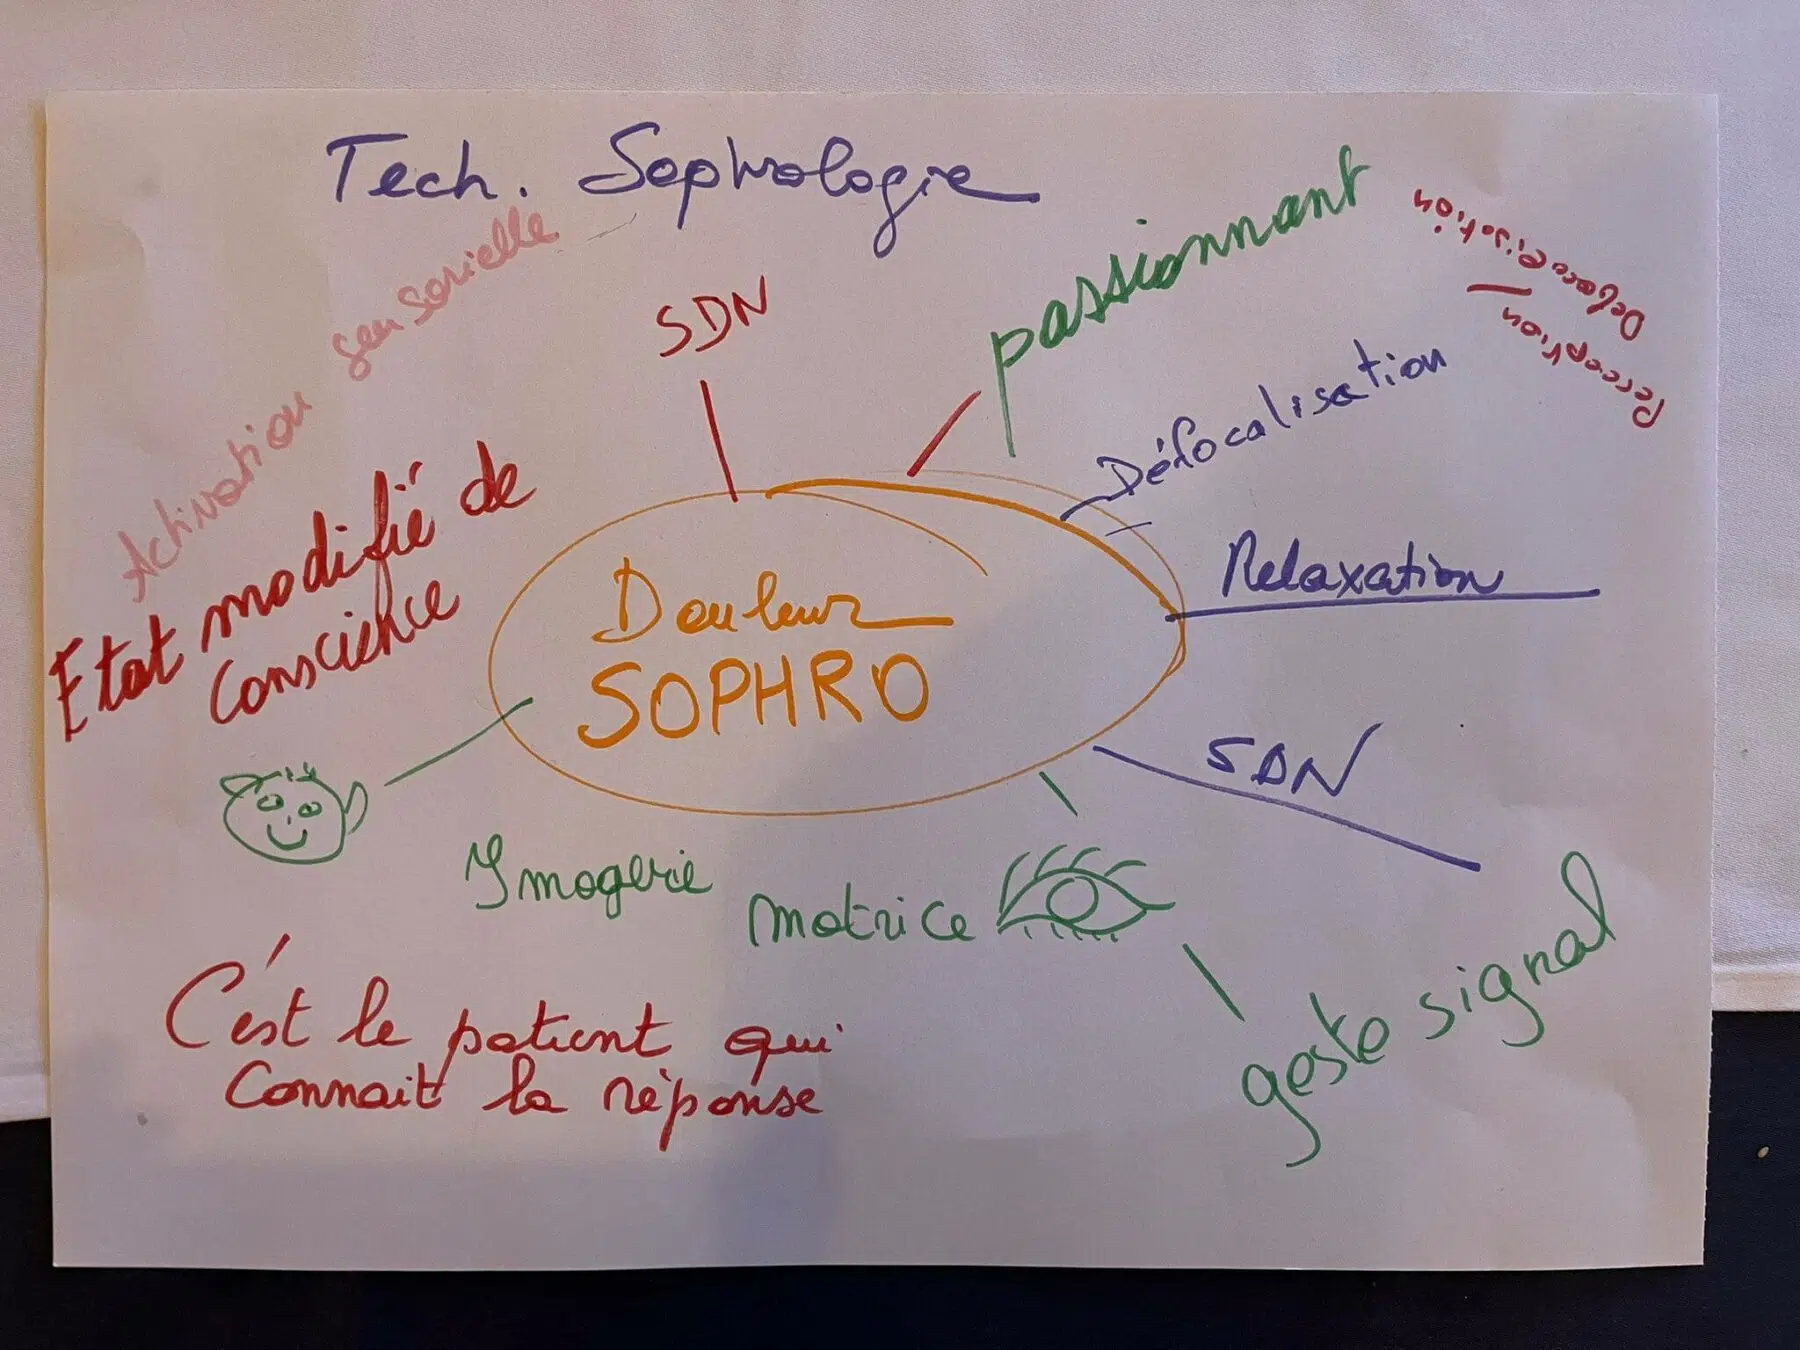 Tech. Sophrologie
Activation sensorielle
SDN
passionnant
Defocalisation
Perception
Défocalisation
Etat modifié de
conscience
Relaxation
Douleur
SOPHRO
SDN
Imagerie motrice
geste signal
C'est le patient qui
connait la réponse